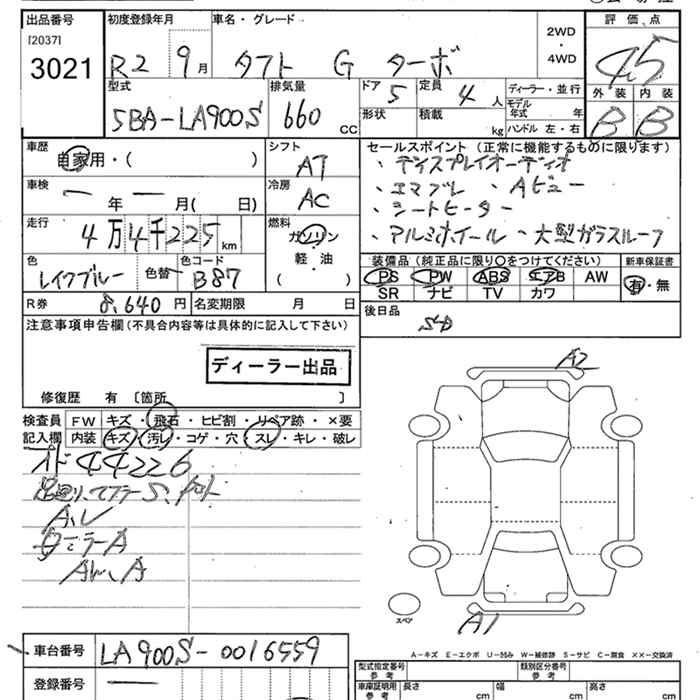 出品番号 初度登録年月 車名・グレード 2WD・4WD 評価点
[2037]
3021 R2 9月 タフト G ターボ 4.5
型式 排気量 ドア 定員 ディーラー・並行 外装 内装
5BA-LA900S 660 CC 5 4人 モデル年式 年 B B
形状 積載 kg ハンドル 左・右
車歴 シフト セールスポイント (正常に機能するものに限ります)
自家用・( ) AT ・ディスプレイオーディオ
車検 冷房 ・エマブレ ・Aビュー
ー年ー月( 日) AC ・シートヒーター
走行 燃料 ・アルミホイール ・大型ガラスルーフ
4万4千225km ガソリン 軽・油 ( )
装備品 (純正品に限り○をつけてください) 新車保証書
色 色替 色コード PS PW ABS エアB AW 有・無
レイクブルー B87 SR ナビ TV カワ
R券 8,640円 名変期限 月 日 後日品
注意事項申告欄 (不具合内容等は具体的に記入して下さい)
ディーラー出品
修復歴 有 〔箇所 〕 A2
検査員 FW キズ・飛石・ヒビ割・リペア跡・×要
記入欄 内装 キズ・汚レ・コゲ・穴・スレ・キレ・破レ
44226
A、
A
A
スペア A1
車台番号 LA900S-0016559
A-キズ E-エクボ U-凹み W-補修跡 S-サビ C-腐食 ××-交換済
登録番号 ー 型式指定番号 参考 類別区分番号 参考
車庫証明用 参考 長さ cm 幅 cm 高さ cm